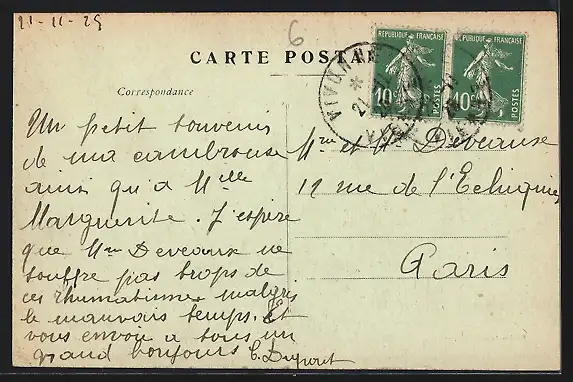 21-11-25
6
CARTE POSTALE
REPUBLIQUE FRANÇAISE
10c
POSTES
REPUBLIQUE FRANÇAISE
10c
POSTES
VIVONNE
Correspondance
Un petit souvenir
de ma cambrouse
ainsi qu'a Melle
Marguerite. J'espère
que Mme Deveaux ne
souffre pas trops de
ces rhumatismes malgrés
le mauvais temps. et
vous envoi a tous un
grand bonjours
Mme et Mr Deveaux
12 rue de l'Echiquier
Paris